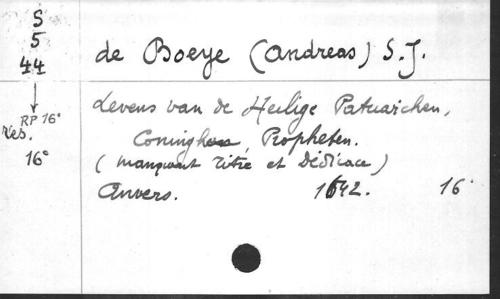 S
5
44
de Boeye (Andreas) S.J.
Levens van de Heilige Patriarchen,
RP 16°
Rés.
Coninghen, Propheten.
16°
(manquent titre et Dédicace)
Anvers. 1642. 16°